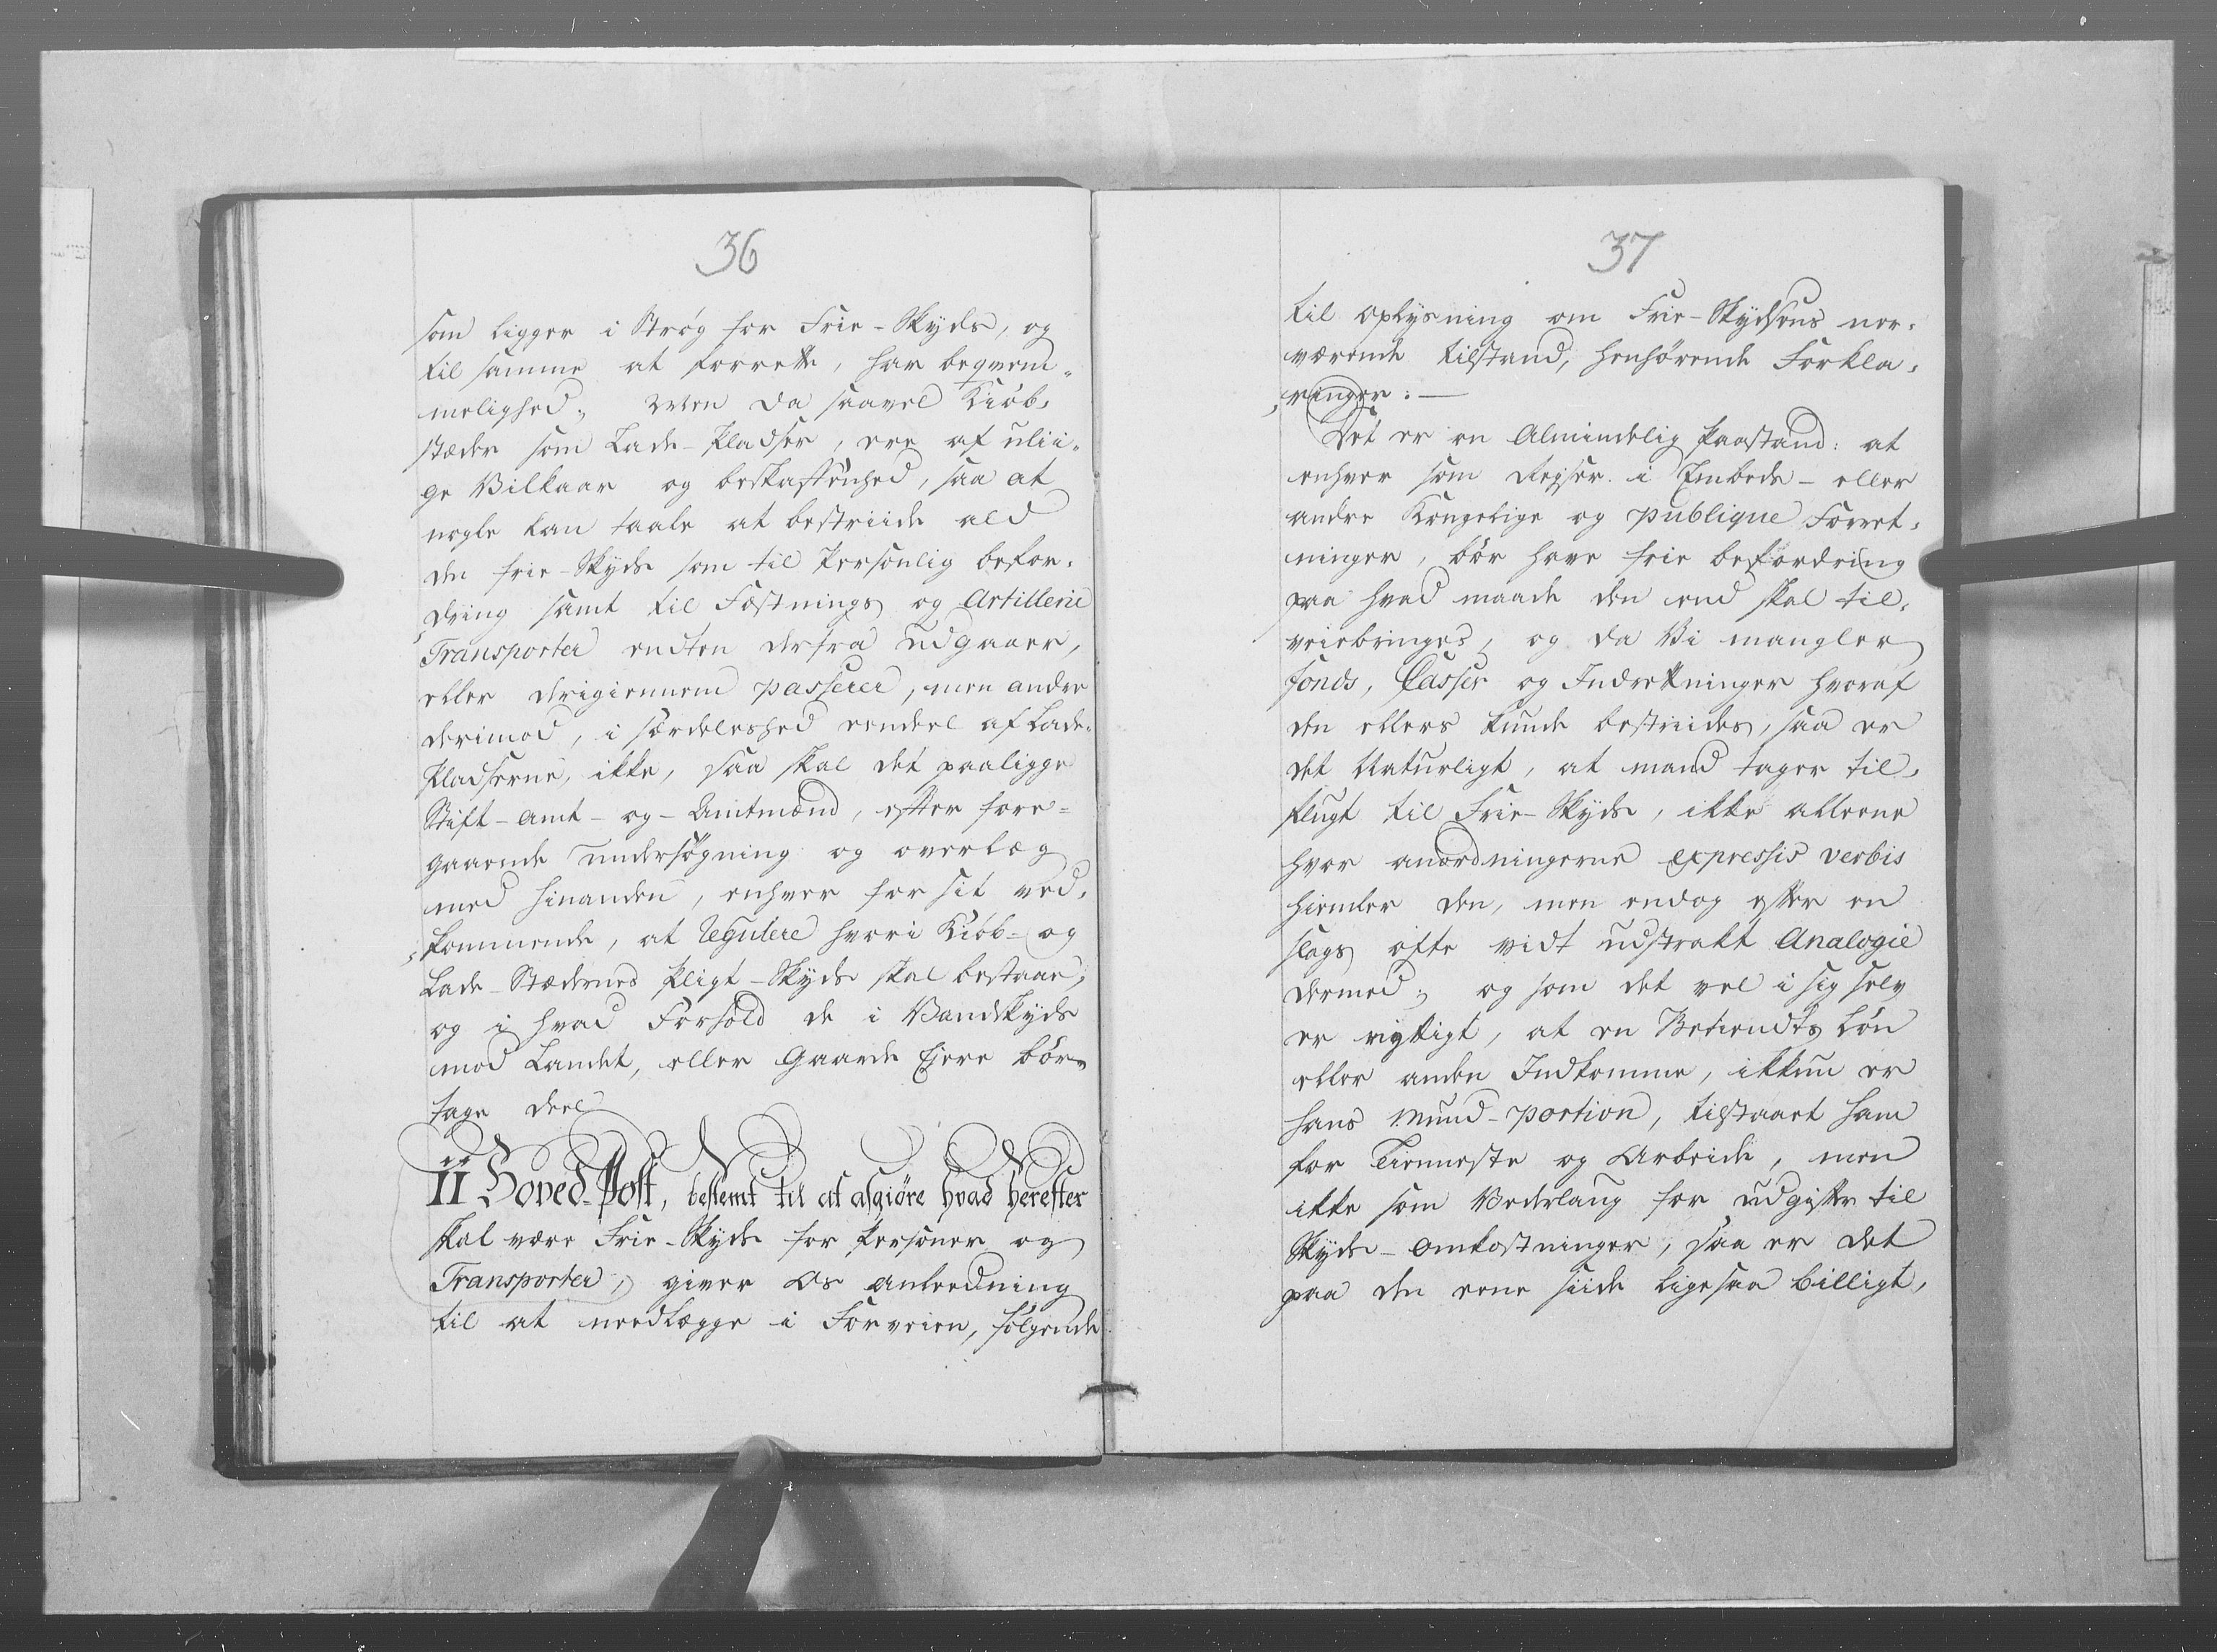 36
som ligger i Strøg for Frie-Skyds, og
til samme at forrette, har beqvem¬
melighed; Men da saavel Kiöb¬
stæder som Lade-Pladser, ere af ulii¬
ge Vilkaar og beskaffenhed, saa at
nogle kan taale at bestriide ald
den frie-Skyds som til Personlig befor¬
dring samt til Fæstnings og Artillerie
Transporter endten derfra udgaaer,
eller derigiennem passerer, men andre
derimod, i særdeleshed eendeel af Lade¬
Pladserne, ikke, saa skal det paaligge
Stift-Amt- og- Amtmænd, efter fore¬
gaaende undersøgning og overlæg
med hinanden, enhver for sit ved¬
kommende, at regulere hvori Kiöb- og
Lade-Stædernes Pligt-Skyds skal bestaae,
og i hvad Forhold de i Vandskyds
mod Landet, eller Gaarde Ejere bör
tage deel
II Hoved-Post, bestemt til at afgiöre hvad herefter
skal være Frie-Skyds for Personer og
Transporter, giver os anleedning
til at needlægge i Forveien, følgende
37
til oplysning om Frie-Skydsens nær¬
værende tilstand, henhørende Forkla¬
ringer: —
Det er en Almindelig Paastand: at
enhver som Rejser i Embeds- eller
andre Kongelige og publique Forret¬
ninger, bör have frie befordring
paa hvad maade den end skal til¬
veiebringes, og da Vi mangler
fonds, Casser og Indretninger hvoraf
den ellers kunde bestriides, saa er
det Naturligt, at mand tager til¬
flugt til Frie-Skyds, ikke alleene
hvor anordningerne expressis verbis
hiemler den, men endog efter en
slags ofte vidt udstrakt Analogie
dermed; og som det vel i sig selv
er rigtigt, at en Betiendts Lön
eller anden Indkomme, ikkun er
hans Mund-portion, tilstaaet ham
for Tienneste og Arbeide, men
ikke som Vederlaug for udgifter til
Skyds-omkostninger, saa er det
paa den eene siide ligesaa billigt,